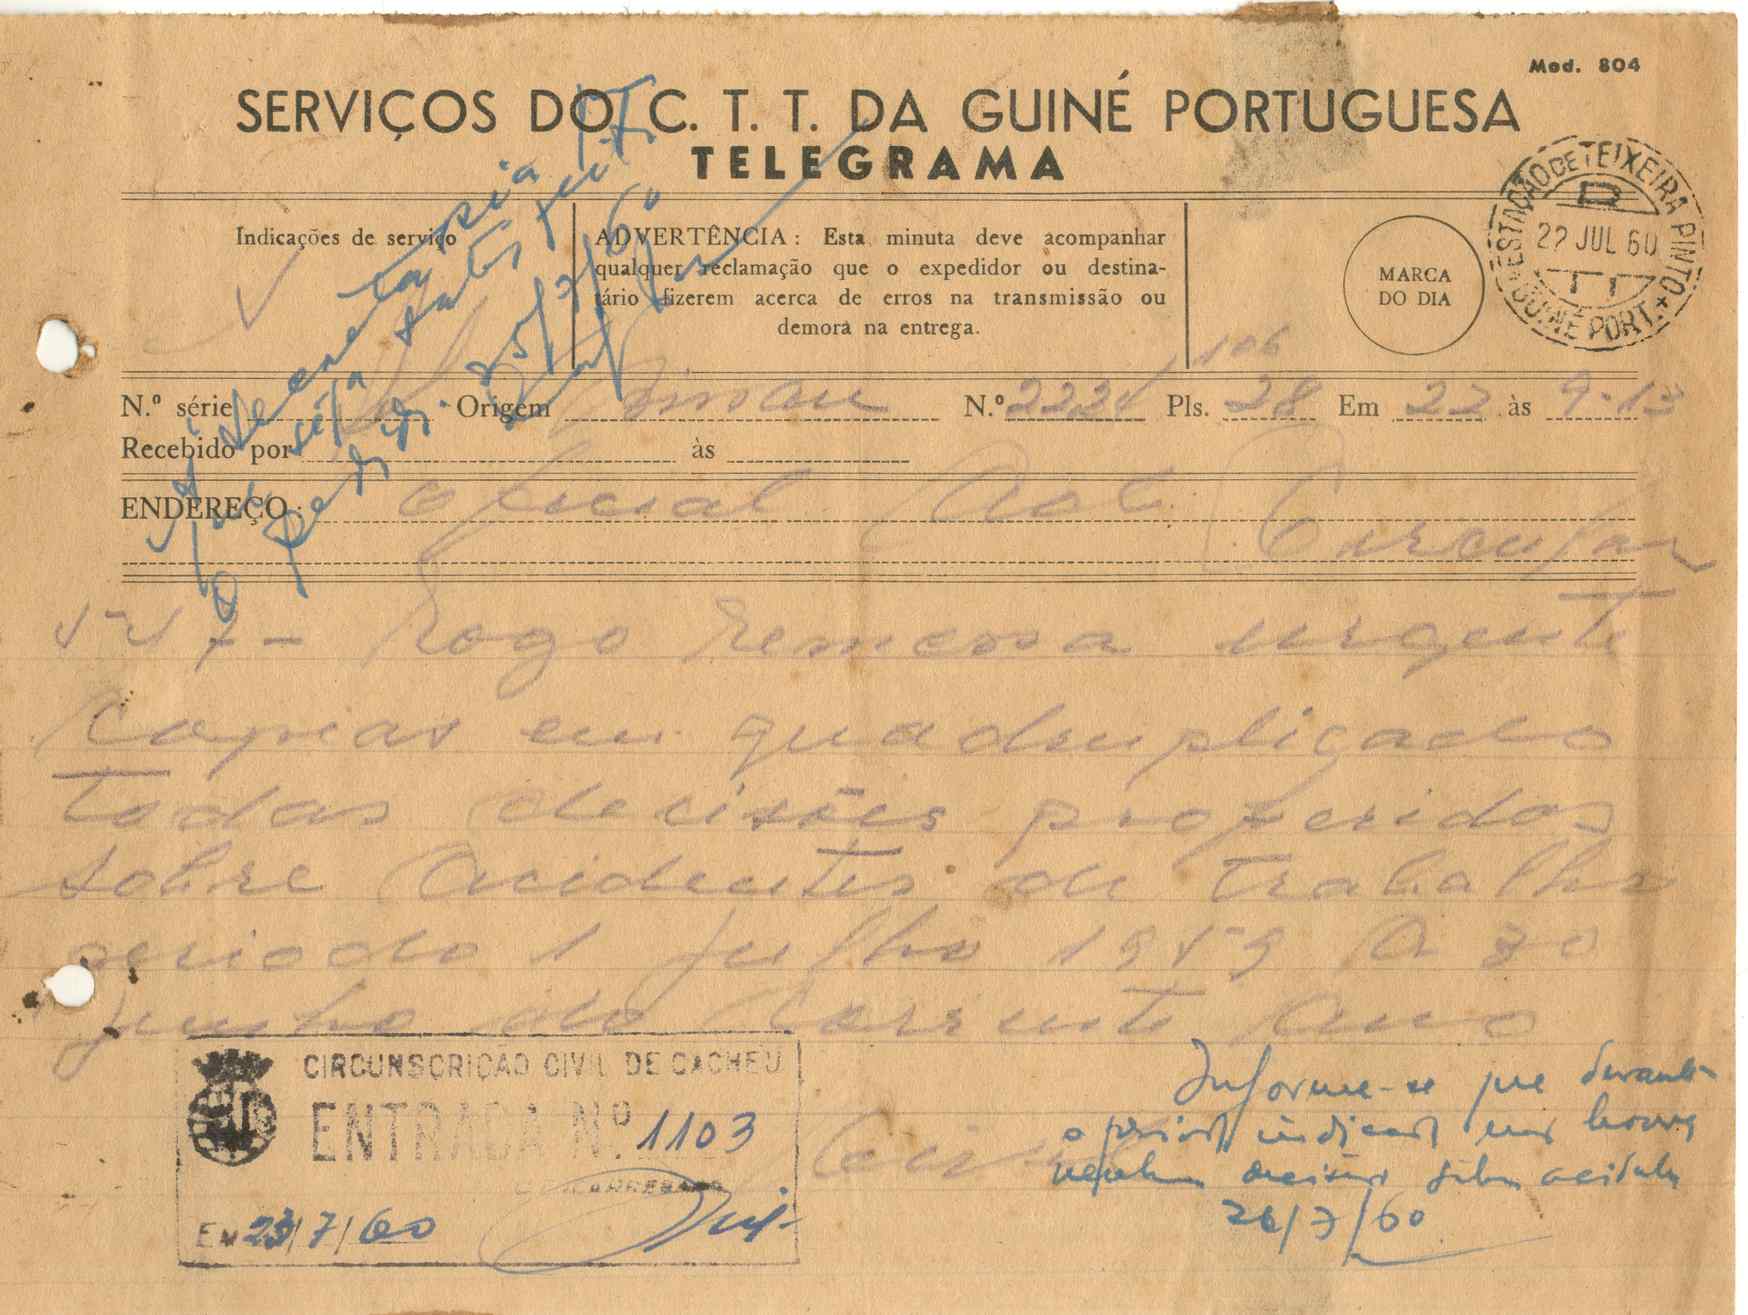 Mod. 804
SERVIÇOS DO C. T. T. DA GUINÉ PORTUGUESA
TELEGRAMA
Indicações de serviço
ADVERTÊNCIA: Esta minuta deve acompanhar
qualquer reclamação que o expedidor ou destina-
tário fizerem acerca de erros na transmissão ou
demora na entrega.
MARCA
DO DIA
ESTAÇÃO DE TEIXEIRA PINTO
22 JUL 60
GUINÉ PORT.
106
N.º série Origem Bissau N.º 2221 Pls. 28 Em 22 às 9-13
Recebido por às
ENDEREÇO: Oficial
Circular
Rogo remessa urgente
Copias em quadruplicado
todas decisões proferidas
sobre Acidentes de trabalho
periodo 1 Julho 1959 A 30
Junho do Corrente Ano
À secretaria
seja satisfeito
25/7/60
CIRCUNSCRIÇÃO CIVIL DE CACHEU
ENTRADA N.º 1103
EM 23/7/60
Informe-se que durante
o periodo indicado não houve
nenhuma decisão sobre acidentes
26/7/60